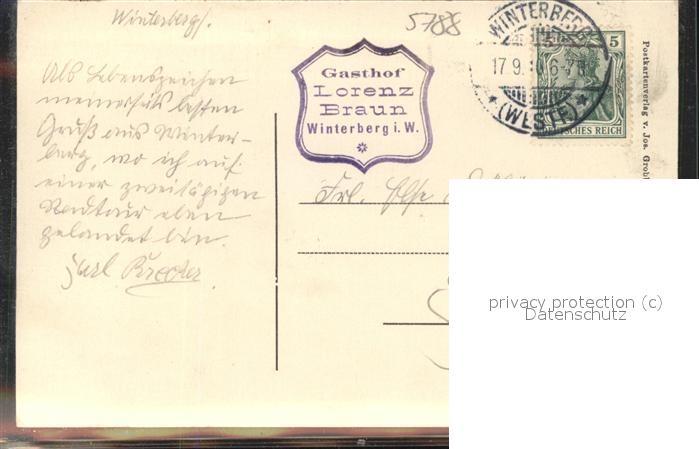 Winterberg.
5788
WINTERBERG
17.9.
6-7N
* (WESTF) *
5
DEUTSCHES REICH
Postkartenverlag v. Jos. Grobb
Gasthof
Lorenz
Braun
Winterberg i. W.
Als Lebenszeichen
meinerseits besten
Gruß aus Winter-
berg, wo ich auf
einer zweitägigen
Radtour eben
gelandet bin.
Karl
Frl. Else
privacy protection (c)
Datenschutz